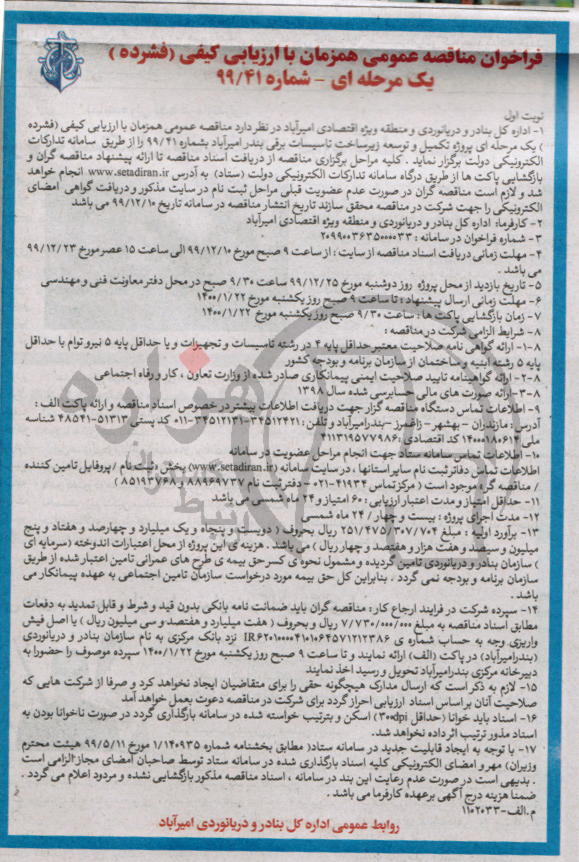 فراخوان مناقصه عمومی همزمان با ارزیابی کیفی (فشرده)
یک مرحله ای - شماره ۹۹/۴۱
نوبت اول
۱- اداره کل بنادر و دریانوردی و منطقه ویژه اقتصادی امیرآباد در نظر دارد مناقصه عمومی همزمان با ارزیابی کیفی (فشرده
) یک مرحله ای پروژه تکمیل و توسعه زیرساخت تاسیسات برقی بندر امیرآباد بشماره ۹۹/۴۱ را از طریق سامانه تدارکات
الکترونیکی دولت برگزار نماید . کلیه مراحل برگزاری مناقصه از دریافت اسناد مناقصه تا ارائه پیشنهاد مناقصه گران و
بازگشایی پاکت ها از طریق درگاه سامانه تدارکات الکترونیکی دولت (ستاد) به آدرس www.setadiran.ir انجام خواهد
شد و لازم است مناقصه گران در صورت عدم عضویت قبلی مراحل ثبت نام در سایت مذکور و دریافت گواهی امضای
الکترونیکی را جهت شرکت در مناقصه محقق سازند تاریخ انتشار مناقصه در سامانه تاریخ ۹۹/۱۲/۱۰ می باشد
۲- کارفرما: اداره کل بنادر و دریانوردی و منطقه ویژه اقتصادی امیرآباد
۳- شماره فراخوان در سامانه : ۲۰۹۹۰۰۳۶۳۵۰۰۰۰۳۳
۴- مهلت زمانی دریافت اسناد مناقصه از سایت: از ساعت ۹ صبح مورخ ۹۹/۱۲/۱۰ الی ساعت ۱۵ عصر مورخ ۹۹/۱۲/۲۳
می باشد .
۵- تاریخ بازدید از محل پروژه روز دوشنبه مورخ ۹۹/۱۲/۲۵ ساعت ۹/۳۰ صبح در محل دفتر معاونت فنی و مهندسی
۶- مهلت زمانی ارسال پیشنهاد : تا ساعت ۹ صبح روز یکشنبه مورخ ۱۴۰۰/۱/۲۲
۷- زمان بازگشایی پاکت ها : ساعت ۹/۳۰ صبح روز یکشنبه مورخ ۱۴۰۰/۱/۲۲
۸- شرایط الزامی شرکت در مناقصه :
۸-۱- ارائه گواهی نامه صلاحیت معتبر حداقل پایه ۴ در رشته تاسیسات و تجهیزات و یا حداقل پایه ۵ نیرو توام با حداقل
پایه ۵ رشته ابنیه و ساختمان از سازمان برنامه و بودجه کشور
۸-۲- ارائه گواهینامه تایید صلاحیت ایمنی پیمانکاری صادر شده از وزارت تعاون ، کار و رفاه اجتماعی
۸-۳- ارائه صورت های مالی حسابرسی شده سال ۱۳۹۸
۹- اطلاعات تماس دستگاه مناقصه گزار جهت دریافت اطلاعات بیشتر در خصوص اسناد مناقصه و ارائه پاکت الف :
آدرس : مازندران - بهشهر - زاغمرز - بندرامیرآباد و تلفن : ۳۴۵۱۲۴۲۱-۳۴۵۱۲۱۳۱-۰۱۱ کد پستی ۵۱۳۱۳-۴۸۵۴۱ شناسه
ملی ۱۴۰۰۰۱۸۰۶۱۴ کد اقتصادی : ۴۱۱۳۱۹۵۷۷۹۸۶
۱۰- اطلاعات تماس سامانه ستاد جهت انجام مراحل عضویت در سامانه
اطلاعات تماس دفاتر ثبت نام سایر استانها ، در سایت سامانه (www.setadiran.ir) بخش «ثبت نام / پروفایل تامین کننده
/ مناقصه گر» موجود است ( مرکز تماس ۴۱۹۳۴-۰۲۱ - دفتر ثبت نام ۸۸۹۶۹۷۳۷ و ۸۵۱۹۳۷۶۸ )
۱۱- حداقل امتیاز و مدت اعتبار ارزیابی : ۶۰ امتیاز و ۲۴ ماه شمسی می باشد
۱۲- مدت اجرای پروژه : بیست و چهار / ۲۴ ماه شمسی
۱۳- برآورد اولیه : مبلغ ۲۵۱/۴۷۵/۳۰۷/۷۰۴ ریال بحروف ( دویست و پنجاه و یک میلیارد و چهارصد و هفتاد و پنج
میلیون و سیصد و هفت هزار و هفتصد و چهار ریال ) می باشد . هزینه ی این پروژه از محل اعتبارات اندوخته (سرمایه ای
) سازمان بنادر و دریانوردی تامین گردیده و مشمول نحوه ی کسر حق بیمه ی طرح های عمرانی تامین اعتبار شده از طریق
سازمان برنامه و بودجه نمی گردد . بنابراین کل حق بیمه مورد درخواست سازمان تامین اجتماعی به عهده پیمانکار می
باشد .
۱۴- سپرده شرکت در فرایند ارجاع کار : مناقصه گران باید ضمانت نامه بانکی بدون قید و شرط و قابل تمدید به دفعات
مطابق اسناد مناقصه به مبلغ ۷/۷۳۰/۰۰۰/۰۰۰ ریال و بحروف ( هفت میلیارد و هفتصد و سی میلیون ریال ) یا اصل فیش
واریزی وجه به حساب شماره ی IR۶۲۰۱۰۰۰۰۴۱۰۱۰۶۴۵۷۱۲۱۲۳۸۶ نزد بانک مرکزی به نام سازمان بنادر و دریانوردی
(بندرامیرآباد) در پاکت (الف) ارائه نمایند و تا ساعت ۹ صبح روز یکشنبه مورخ ۱۴۰۰/۱/۲۲ سپرده موصوف را حضورا به
دبیرخانه مرکزی بندرامیرآباد تحویل و رسید اخذ نمایند
۱۵- لازم به ذکر است که ارسال مدارک هیچگونه حقی را برای متقاضیان ایجاد نخواهد کرد و صرفا از شرکت هایی که
صلاحیت آنان بر اساس اسناد ارزیابی احراز گردد برای شرکت در مناقصه دعوت بعمل خواهد آمد
۱۶- اسناد باید خوانا (حداقل ۳۰۰dpi) اسکن و بترتیب خواسته شده در سامانه بارگذاری گردد در صورت ناخوانا بودن به
اسناد مذکور ترتیب اثر داده نخواهد شد.
۱۷- با توجه به ایجاد قابلیت جدید در سامانه ستاد( مطابق بخشنامه شماره ۱/۱۴۰۹۳۵ مورخ ۹۹/۵/۱۱ هیئت محترم
وزیران) مهر و امضای الکترونیکی کلیه اسناد بارگذاری شده در سامانه ستاد توسط صاحبان امضای مجاز الزامی است
. بدیهی است در صورت عدم رعایت این بند در سامانه ، اسناد مناقصه مذکور بازگشایی نشده و مردود اعلام می گردد .
ضمنا هزینه درج آگهی برعهده کارفرما می باشد .
م.الف-۱۱۰۲۰۳۳
روابط عمومی اداره کل بنادر و دریانوردی امیرآباد
هزاره